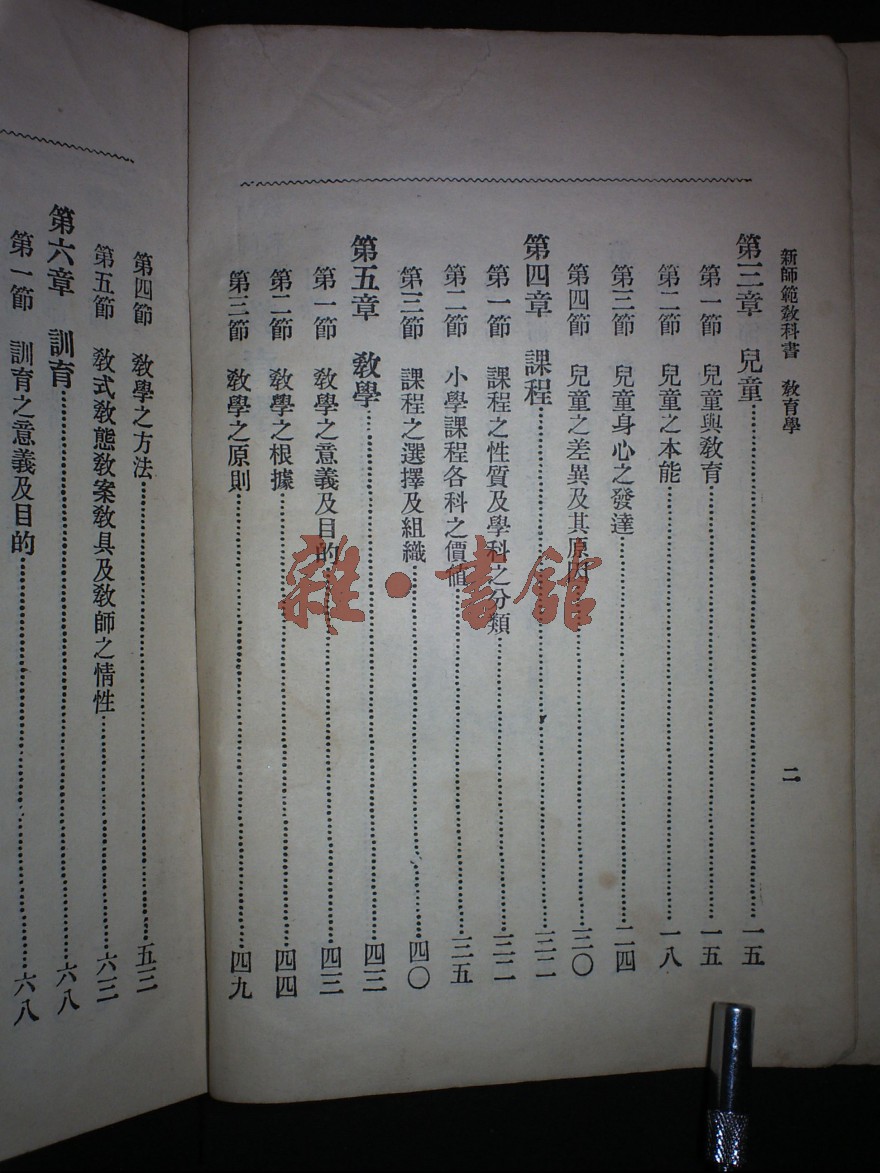 新師範教科書　教育學
二
第三章　兒童……一五
第一節　兒童與教育……一五
第二節　兒童之本能……一八
第三節　兒童身心之發達……二四
第四節　兒童之差異及其原因……三〇
第四章　課程……三二
第一節　課程之性質及學科之分類……三二
第二節　小學課程各科之價值……三五
第三節　課程之選擇及組織……四〇
第五章　教學……四三
第一節　教學之意義及目的……四三
第二節　教學之根據……四四
第三節　教學之原則……四九
第四節　教學之方法……五三
第五節　教式教態教案教具及教師之情性……六三
第六章　訓育……六八
第一節　訓育之意義及目的……六八
雜·書館